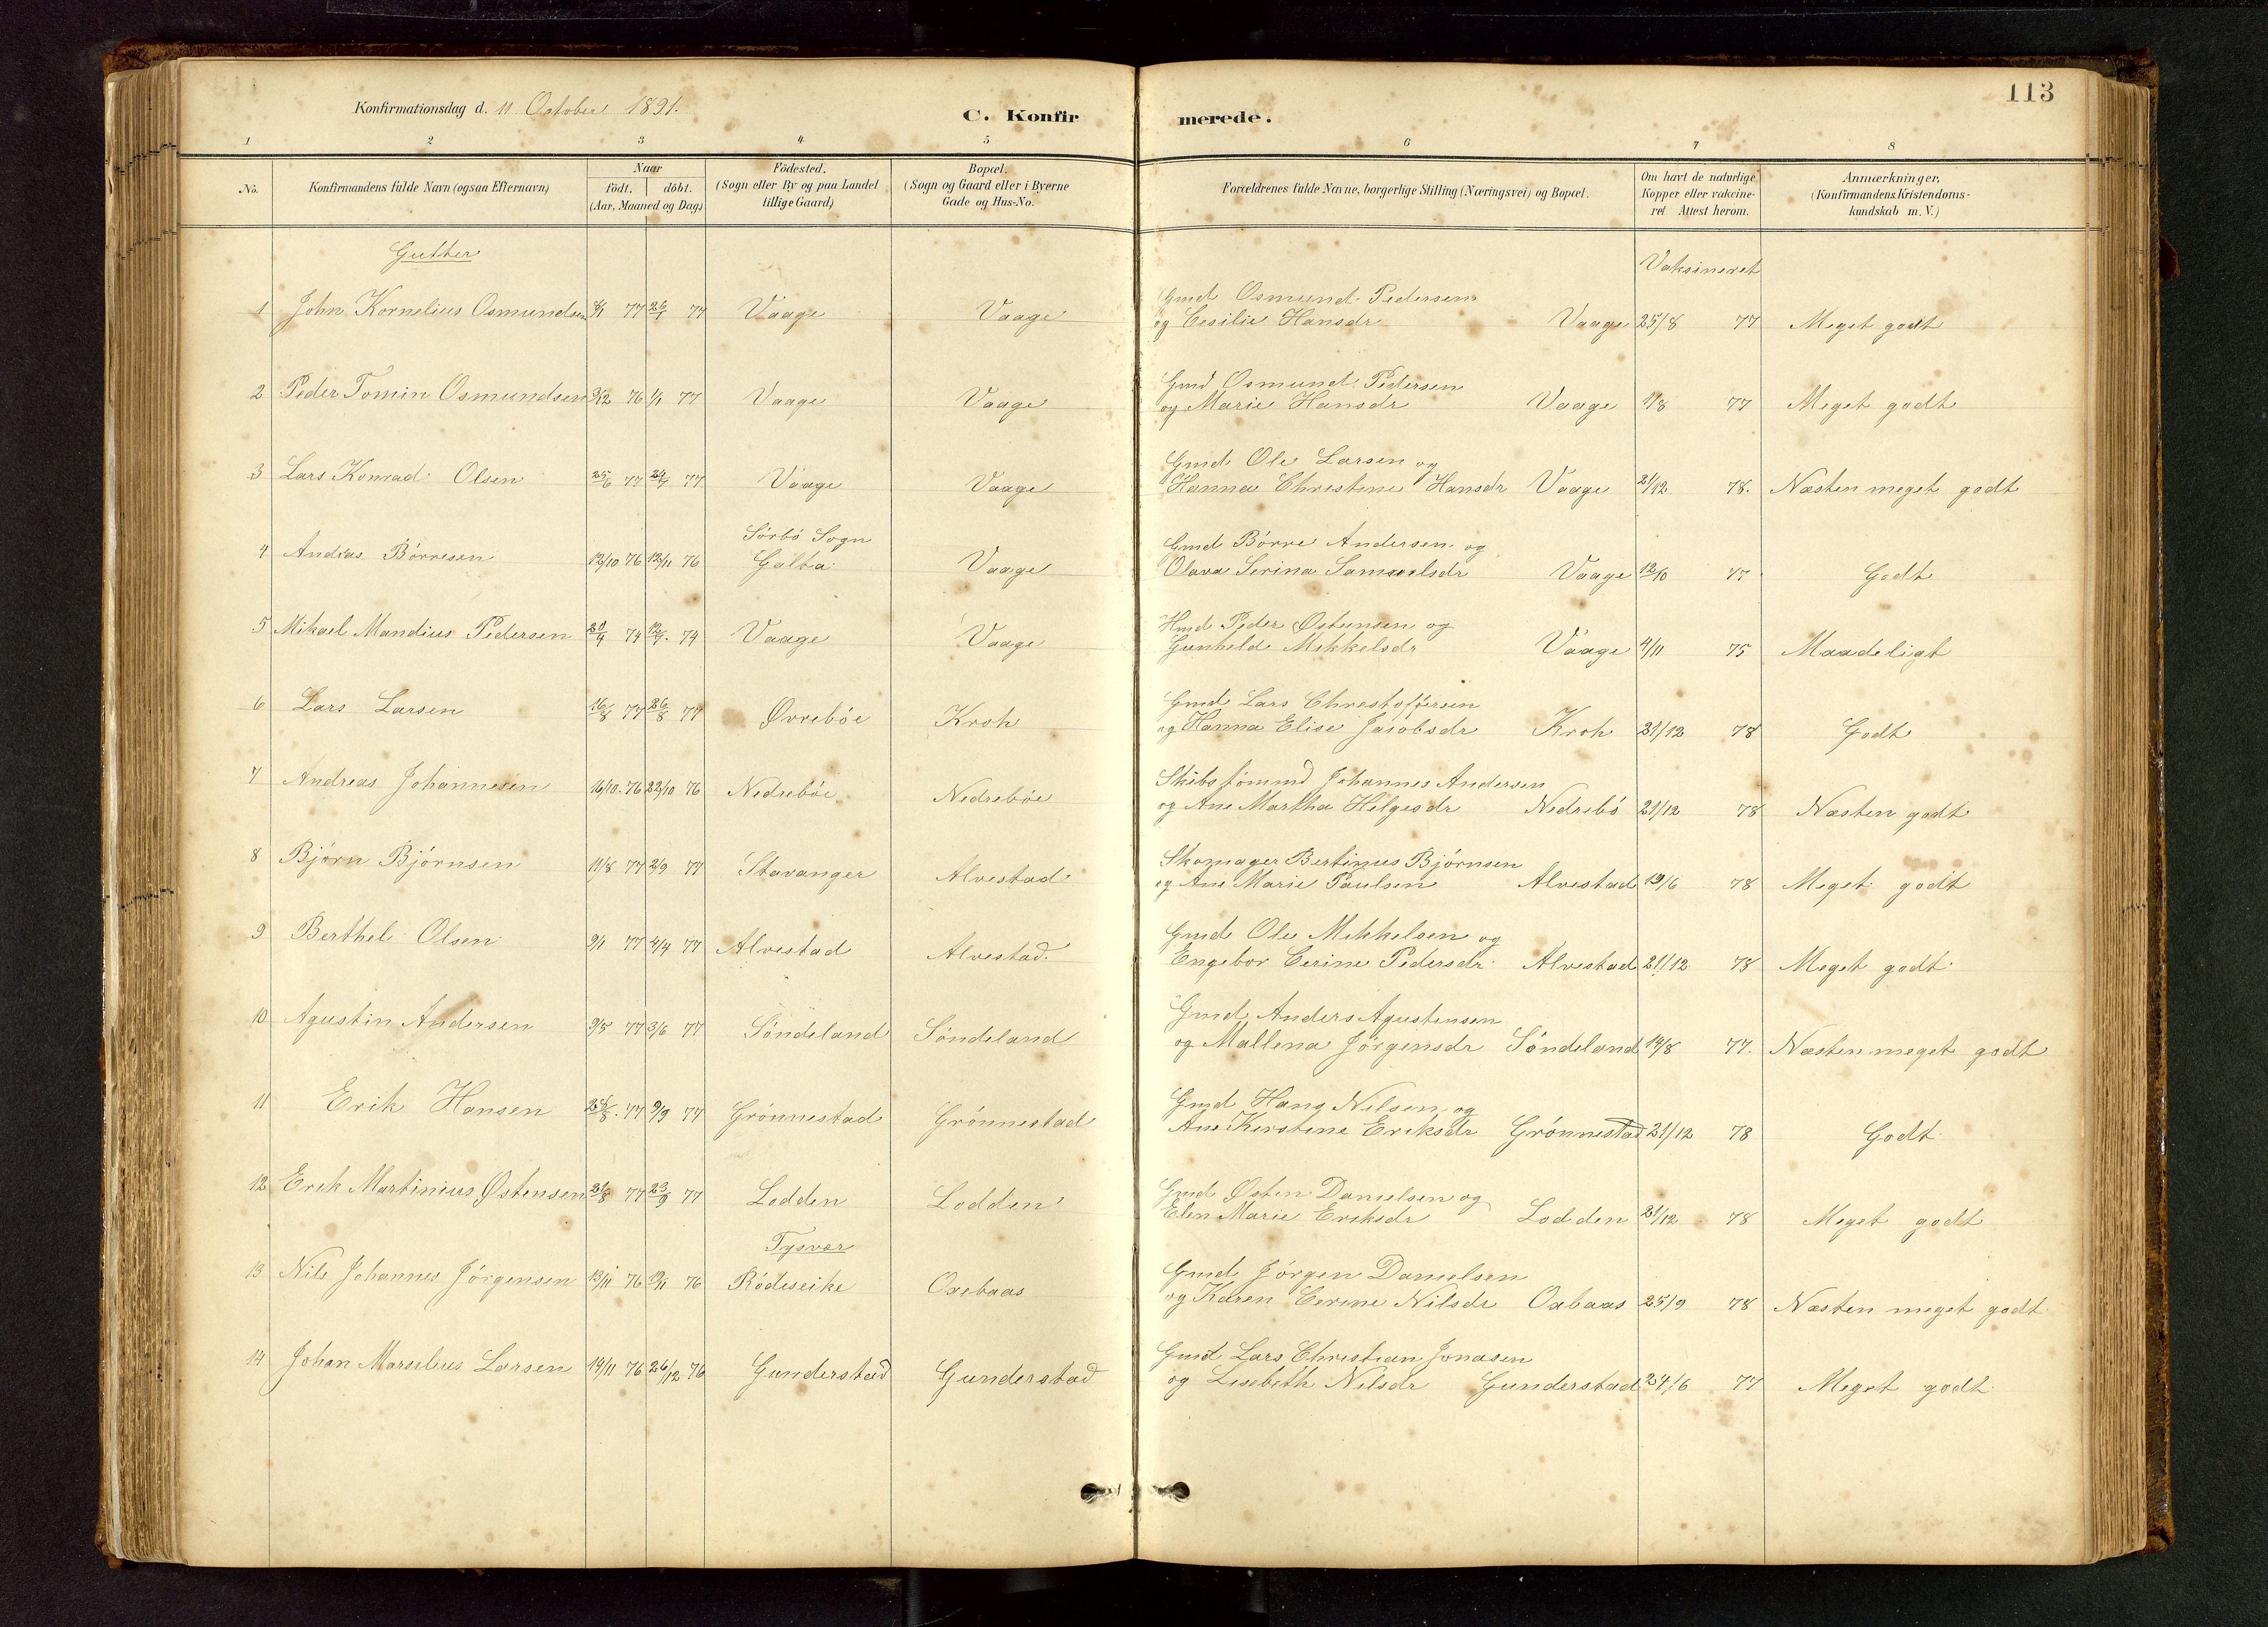 113
Konfirmationsdag d. 11 October 1891.
C. Konfirmerede.
1 2 3 4 5 6 7 8
No. Konfirmandens fulde Navn (ogsaa Efternavn) Naar født. döbt. (Aar, Maaned og Dag.) Födested. (Sogn eller By og paa Landet tillige Gaard) Bopæl. (Sogn og Gaard eller i Byerne Gade og Hus-No. Forældrenes fulde Navne, borgerlige Stilling (Næringsvei) og Bopæl. Om havt de naturlige Kopper eller vakcineret. Attest herom. Anmærkninger, (Konfirmandens Kristendomskundskab m. V.)
Gutter
Vaksineret
1 John Kornelius Osmundsen 77 77 Vaage Vaage Gmd Osmund Pedersen
og Cesilie Hansdr Vaage 25/8 77 Meget godt
2 Peder Tomin Osmundsen 76 1/1 77 Vaage Vaage Gmd Osmund Pedersen
og Marie Hansdr Vaage 77 Meget godt
3 Lars Konrad Olsen 25/6 77 77 Vaage Vaage Gmd Ole Larsen og
Hanna Christine Hansdr Vaage 21/12 78. Næsten meget godt
Sörbö Sogn
4 Andras Börresen 12/10 76 12/11 76 Galta Vaage Gmd Börre Andersen og
Olava Serina Samuelsdr Vaage 12/10 77 Godt
5 Mikael Mandius Pedersen 74 74 Vaage Vaage Hmd Peder Østensen og
Gunhelde Mikkelsdr Vaage 4/11 75 Maadeligt
6 Lars Larsen 16/8 77 26/8 77 Øvrebøe Kroh Gmd Lars Chrestoffersen
og Hanna Elise Jacobsdr Kroh 21/12 78 Godt
7 Andreas Johannesen 16/10. 76 22/10 76 Nedrebøe Nedrebøe Skibstömmd Johannes Andersen
og Ane Martha Helgesdr Nedrebö 21/12 78 Næsten godt
8 Bjørn Bjørnsen 11/8 77 2/9 77 Stavanger Alvestad Skomager Bertinius Bjørnsen
og Ane Marie Paulsen Alvestad 19/6 78 Meget godt
9 Berthel Olsen 9/1 77 4/4 77 Alvestad Alvestad. Gmd Ole Mikkelsen og
Engebor Cerine Pedersdr Alvestad 21/12 78 Meget godt
10 Agustin Andersen 9/5 77 3/6 77 Söndeland Söndeland Gmd Anders Agustensen
og Mallena Jörgensdr Söndeland 14/8 77. Næsten meget godt
11 Erik Hansen 77 9/9 77 Grönnestad Grönnestad Gmd Hans Nilsen og
Ane Kirstine Eriksdr Grönnestad 21/12 78 Godt
12 Erik Martinius Østensen 21/8 77 23/9 77 Lodden Lodden Gmd Østen Danielsen og
Elen Marie Eriksdr Lodden 21/12 78 Meget godt
Tysvær
13 Nils Johannes Jörgensen 13/11 76 19/11 76 Rödeseike Oxebaas Gmd Jörgen Danielsen
og Karen Cerine Nilsdr Oxbaas 25/9 78 Næsten meget godt
14 Johan Marselius Larsen 19/11 76 26/12 76 Gunderstad Gunderstad Gmd Lars Christian Jonasen
og Lisebeth Nilsdr Gunderstad 24/6 77 Meget godt